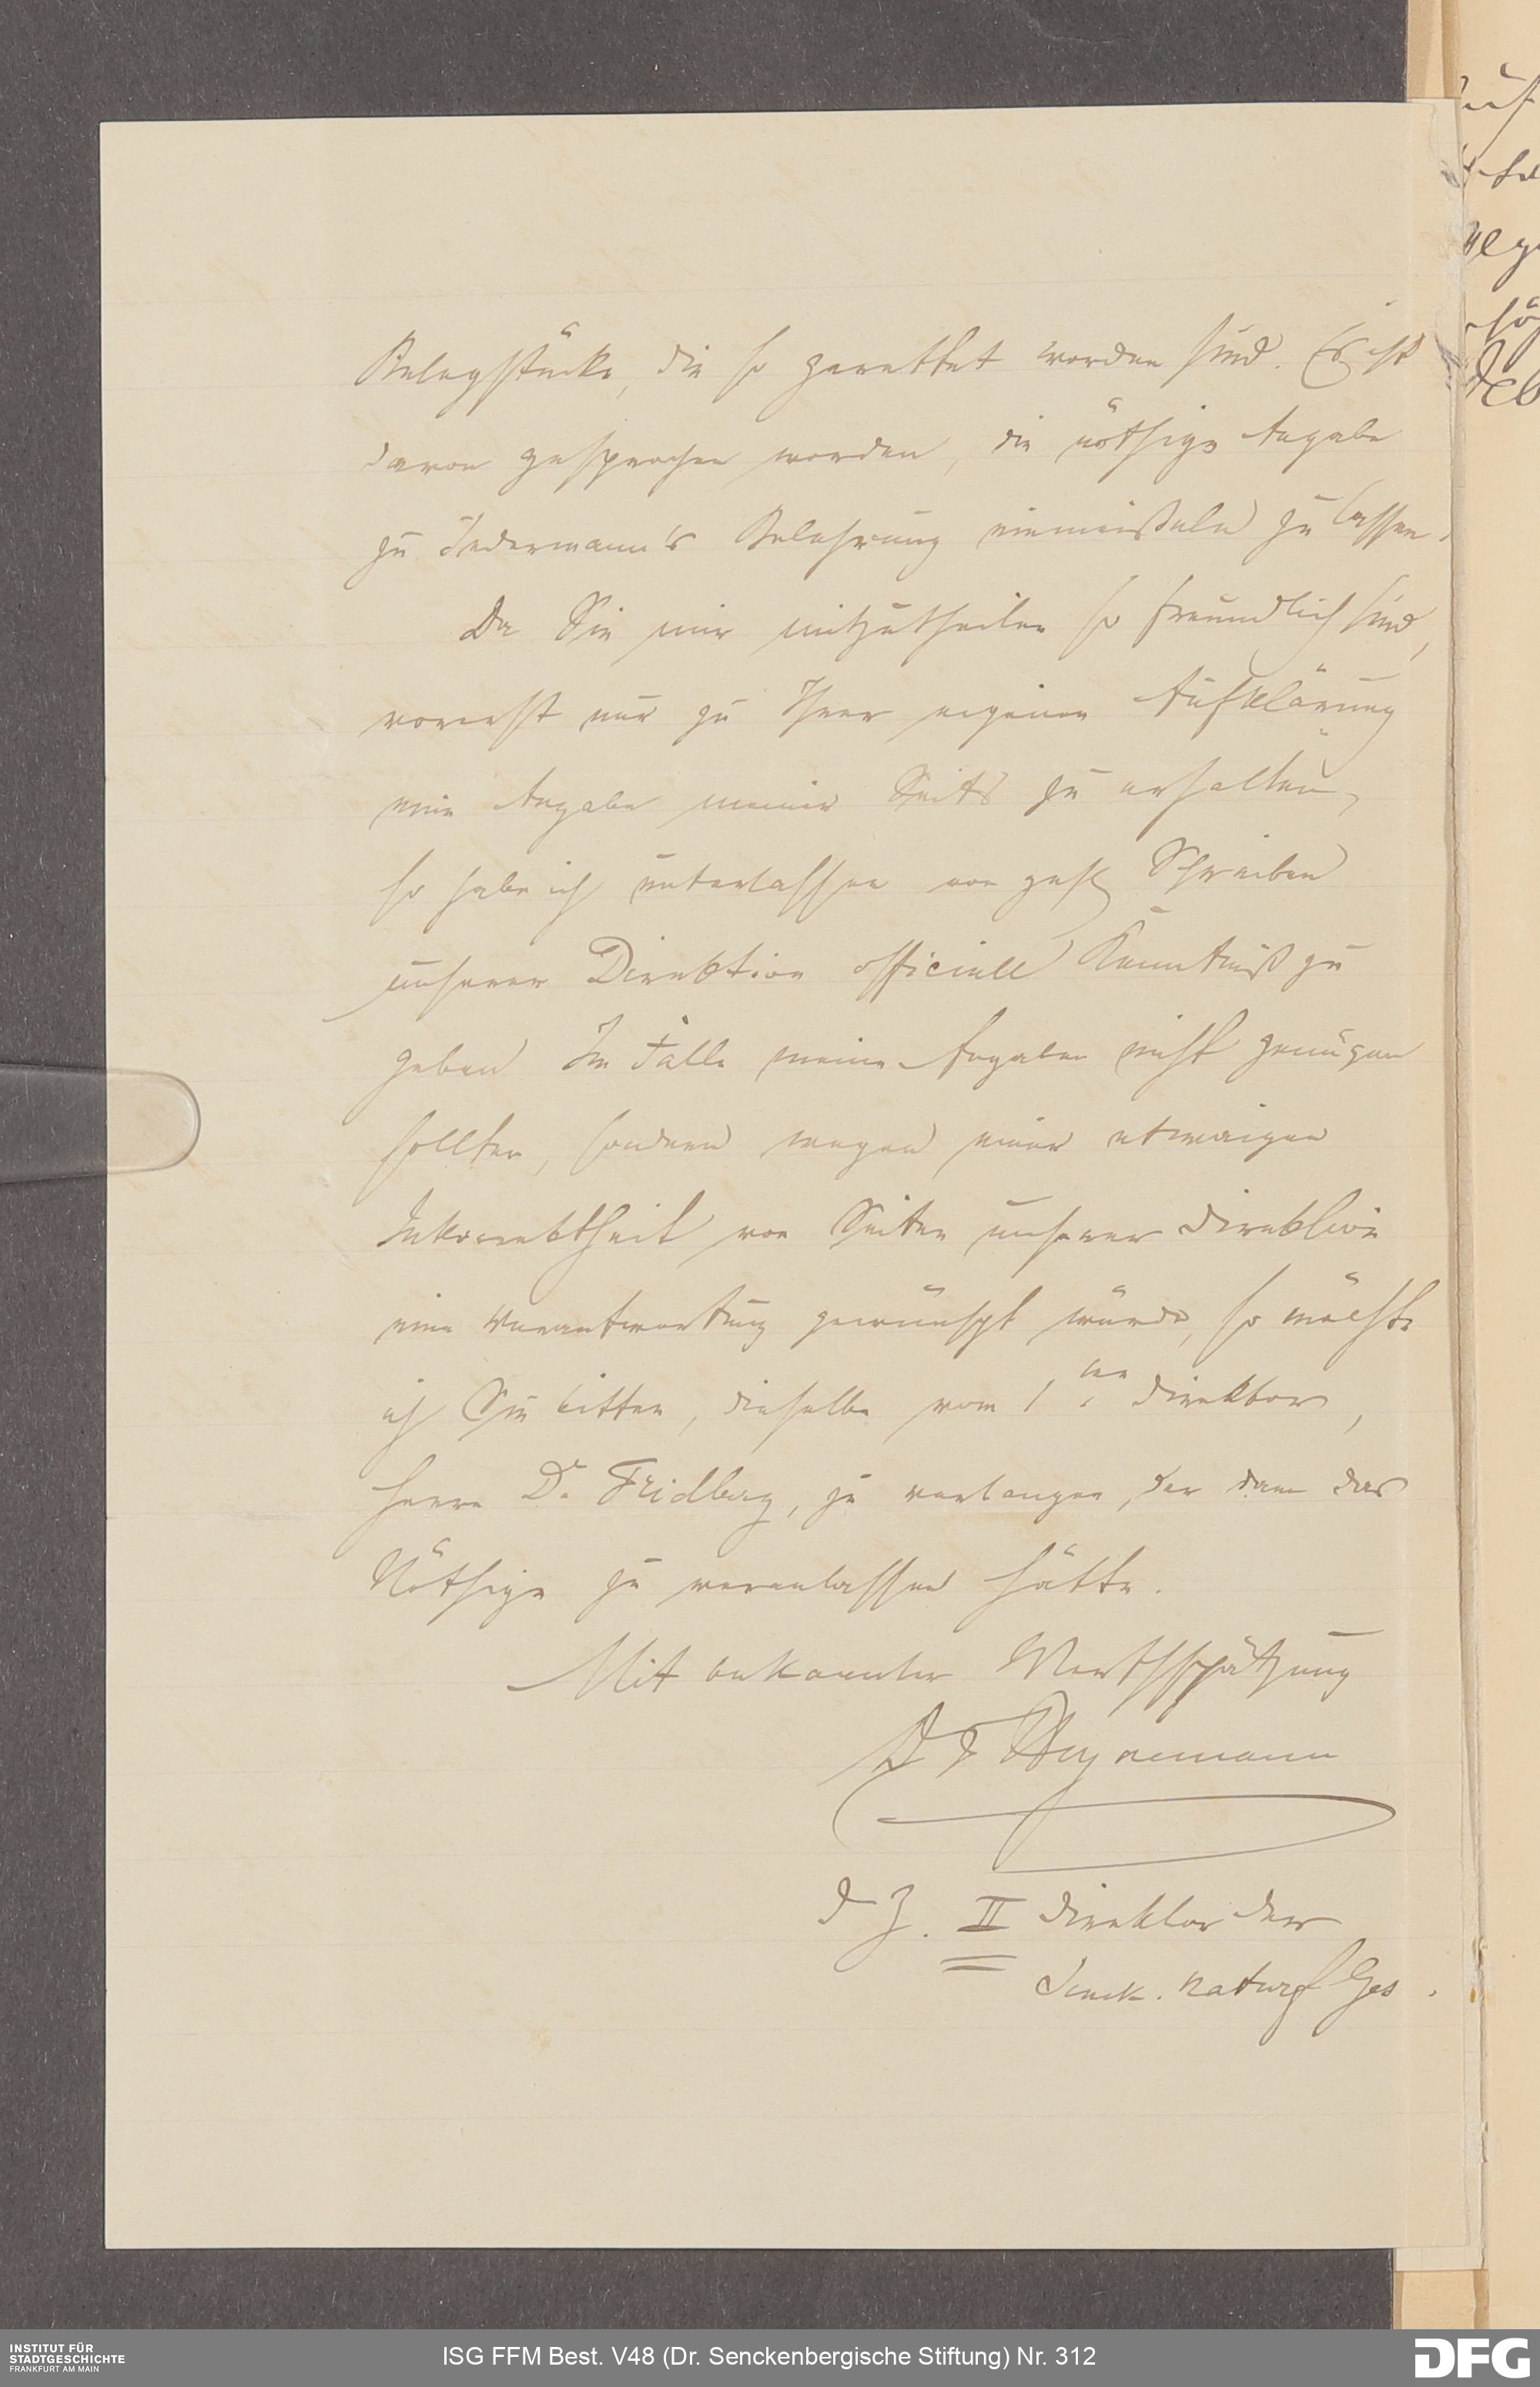 Belegstücke, die so gerettet worden sind. Es ist
davon gesprochen worden, die nöthige Angabe
zu Jedermann's Belehrung einmeißeln zu lassen.
Da Sie mir mitzutheilen so freundlich sind,
vorerst nur zu Ihrer eigenen Aufklärung
eine Angabe meiner Seits zu erhalten,
so habe ich unterlassen von gefl Schreiben
unserer Direktion officiell Kenntniß zu
geben Im Falle meine Angaben nicht genügen
sollten, sondern wegen einer etwaigen
Inkorrektheit von Seiten unserer Direktion
eine Verantwortung gewünscht würde, so möchte
ich Sie bitten, dieselbe vom 1ten Direktor,
Herrn Dr. Fridberg, zu verlangen, der dann das
Nöthige zu veranlassen hätte.
Mit bekannter Werthschätzung
D F Heynemann
d Z. II Direktor der
Senck. naturf Ges.
INSTITUT FÜR
STADTGESCHICHTE
FRANKFURT AM MAIN
ISG FFM Best. V48 (Dr. Senckenbergische Stiftung) Nr. 312
DFG